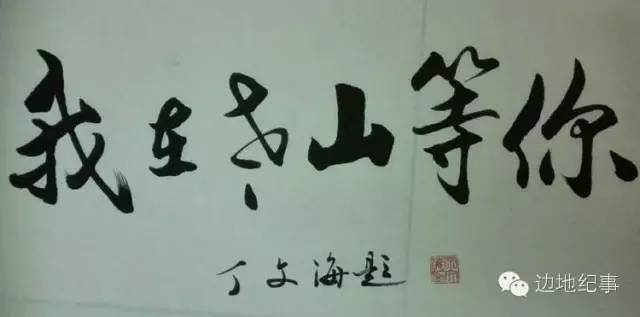 我在老山等你
丁文海题
边地纪事